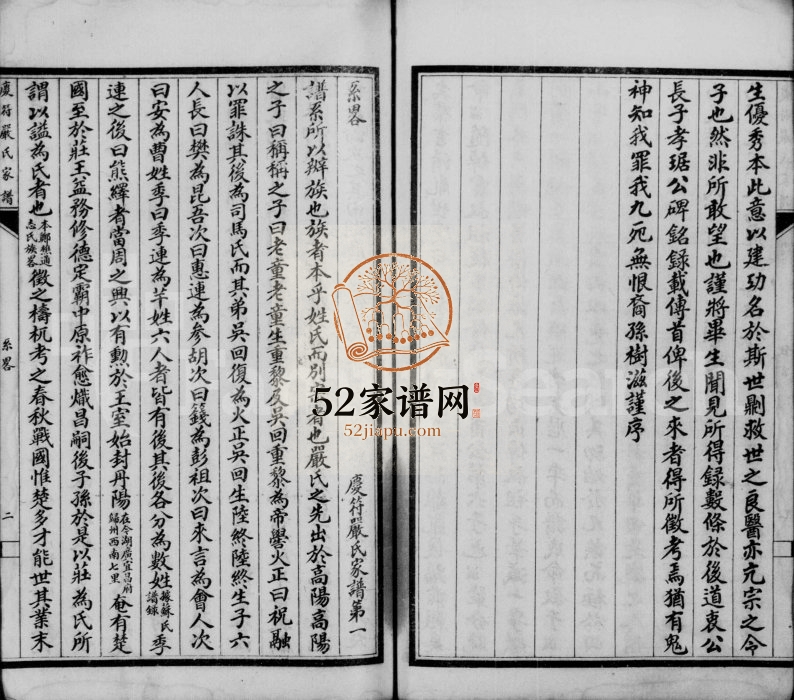 生優秀本此意以建功名於斯世剷救世之良醫亦亢宗之令
子也然非所敢望也謹將畢生聞見所得録數條於後道衷公
長子孝琚公碑銘録載傳首俾後之來者得所徵考焉猶有鬼
神知我罪我九死無恨裔孫樹滋謹序
系畧
慶符嚴氏家譜第一
譜系所以辨族也族者本乎姓氏而別
者也嚴氏之先出於高陽高陽
之子曰稱稱之子曰老童老童生重黎及吳回重黎為帝嚳火正曰祝融
以罪誅其後為司馬氏而其弟吳回復為火正吳回生陸終陸終生子六
人長曰樊為昆吾次曰惠連為參胡次曰籛為彭祖次曰來言為會人次
曰安為曹姓季曰季連為芊姓六人者皆有後其後各分為數姓據蘇氏譜録季
連之後曰熊繹者當周之興以有勲於王室始封丹陽在今湖廣宜昌府歸州西南七里奄有楚
國至於莊王益務修德定霸中原祚愈熾昌嗣後子孫於是以莊為氏所
謂以謚為氏者也本鄭樵通志氏族畧徵之檮杌考之春秋戰國惟楚多才能世其業末
慶符嚴氏家譜
系畧
二
52家谱网
52jiapu.com